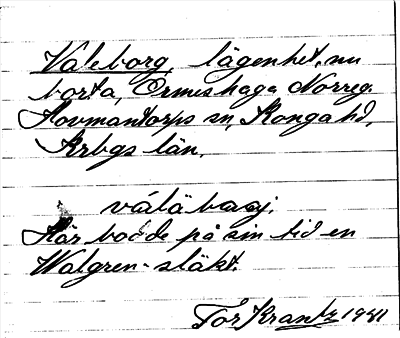 Valeborg, lägenhet, nu
borta, Ormeshaga Norreg.
Hovmantorps sn, Konga hd,
Krbgs län.
válä baaj.
Här bodde på sin tid en
Walgren-släkt.
Tor Krantz 1941